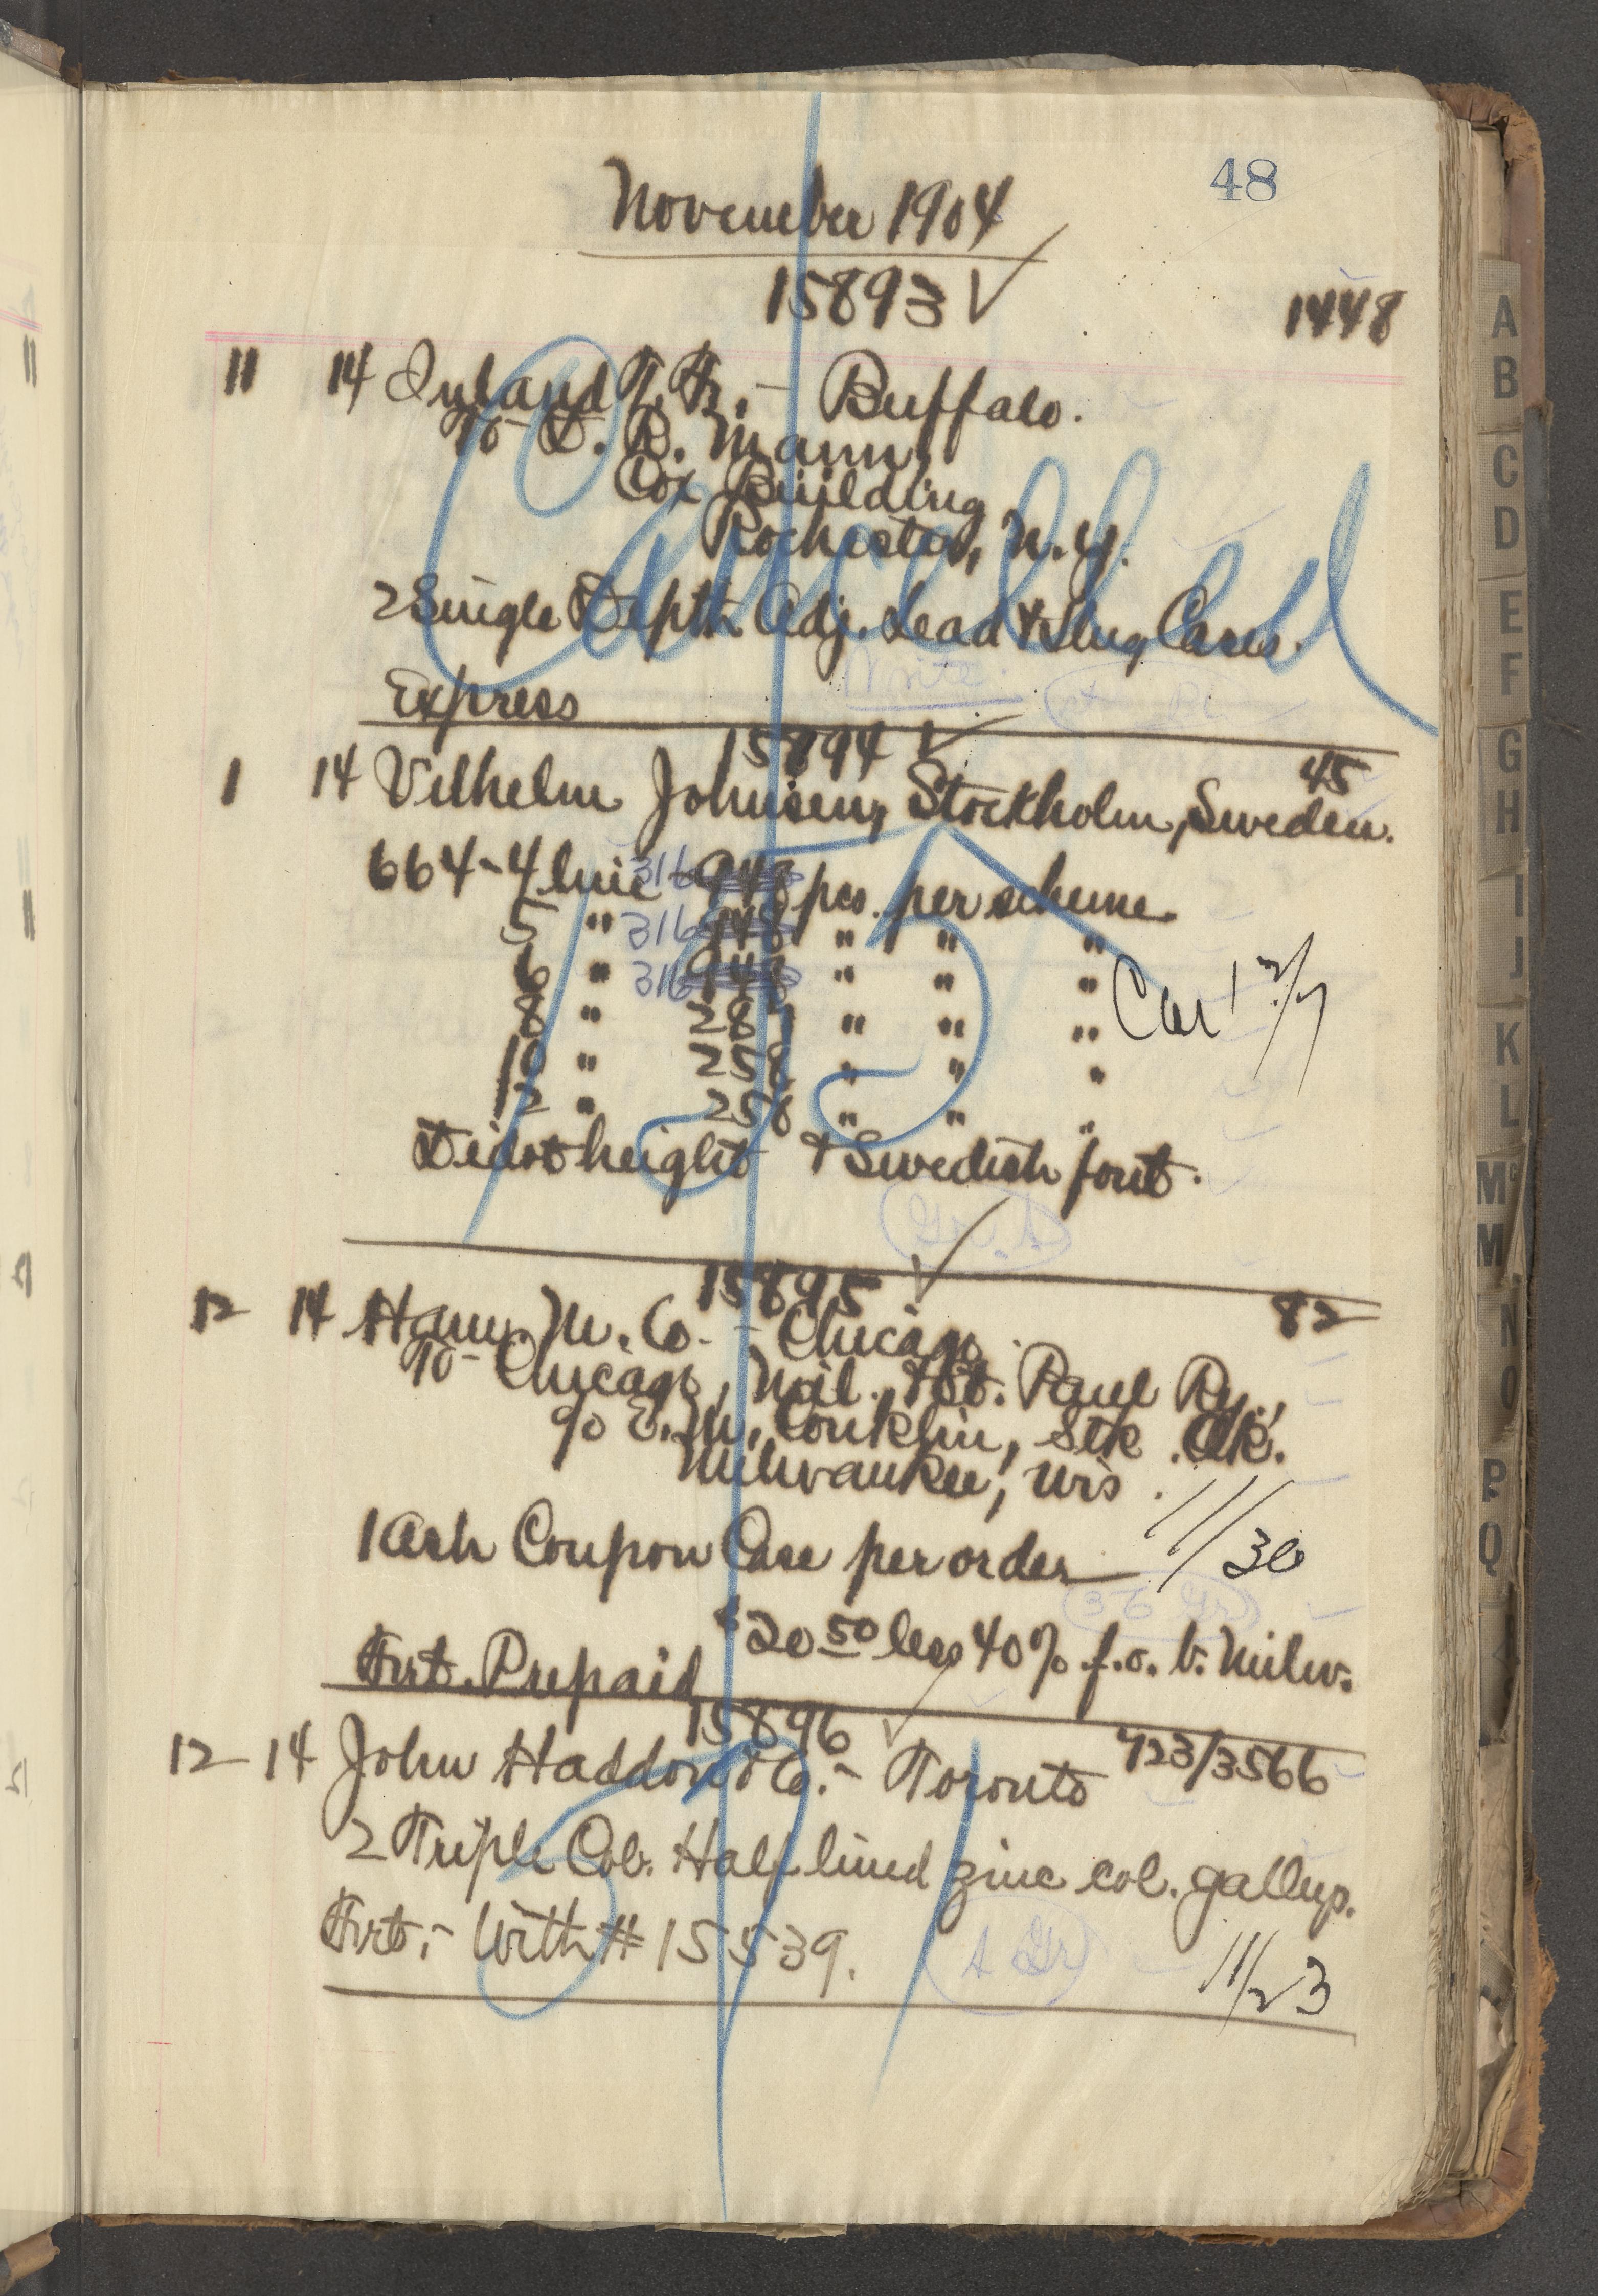 48
November 1904
15893 ✓
1448
11 14 Inland T. Fr. - Buffalo.
To- E. B. Mann,
Cox Building
Rochester, N.Y.
2 Single Depth Adj. Lead & Slug Cases.
Cancelled
Express
15894 ✓
45
1 14 Vilhelm Johnsen, Stockholm, Sweden.
664-4 line 316 948 pcs. per scheme.
5 " 316 948 " " "
6 " 316 948 " " "
8 " 287 " " "
Car 1 2/7
10 " 258 " " "
12 " 258 " " "
Didot height & Swedish font.
15895 ✓
82
12 14 Ham. M. Co. - Chicago.
To- Chicago, Mil. & St. Paul Ry.,
c/o E. M. Conklin, Stk. Clk.
Milwaukee, Wis.
1 Ash Coupon Case per order
11/30
$20 50 less 40% f.o.b. Milw.
Frt. Prepaid
15896 ✓
423/3566
12 14 John Haddon & Co. - Toronto
2 Triple Col. Half lined zinc col. galleys.
Frt. - With # 15539.
11/23
A
B
C
D
E
F
G
H
I
J
K
L
Mc
M
N
O
P
Q